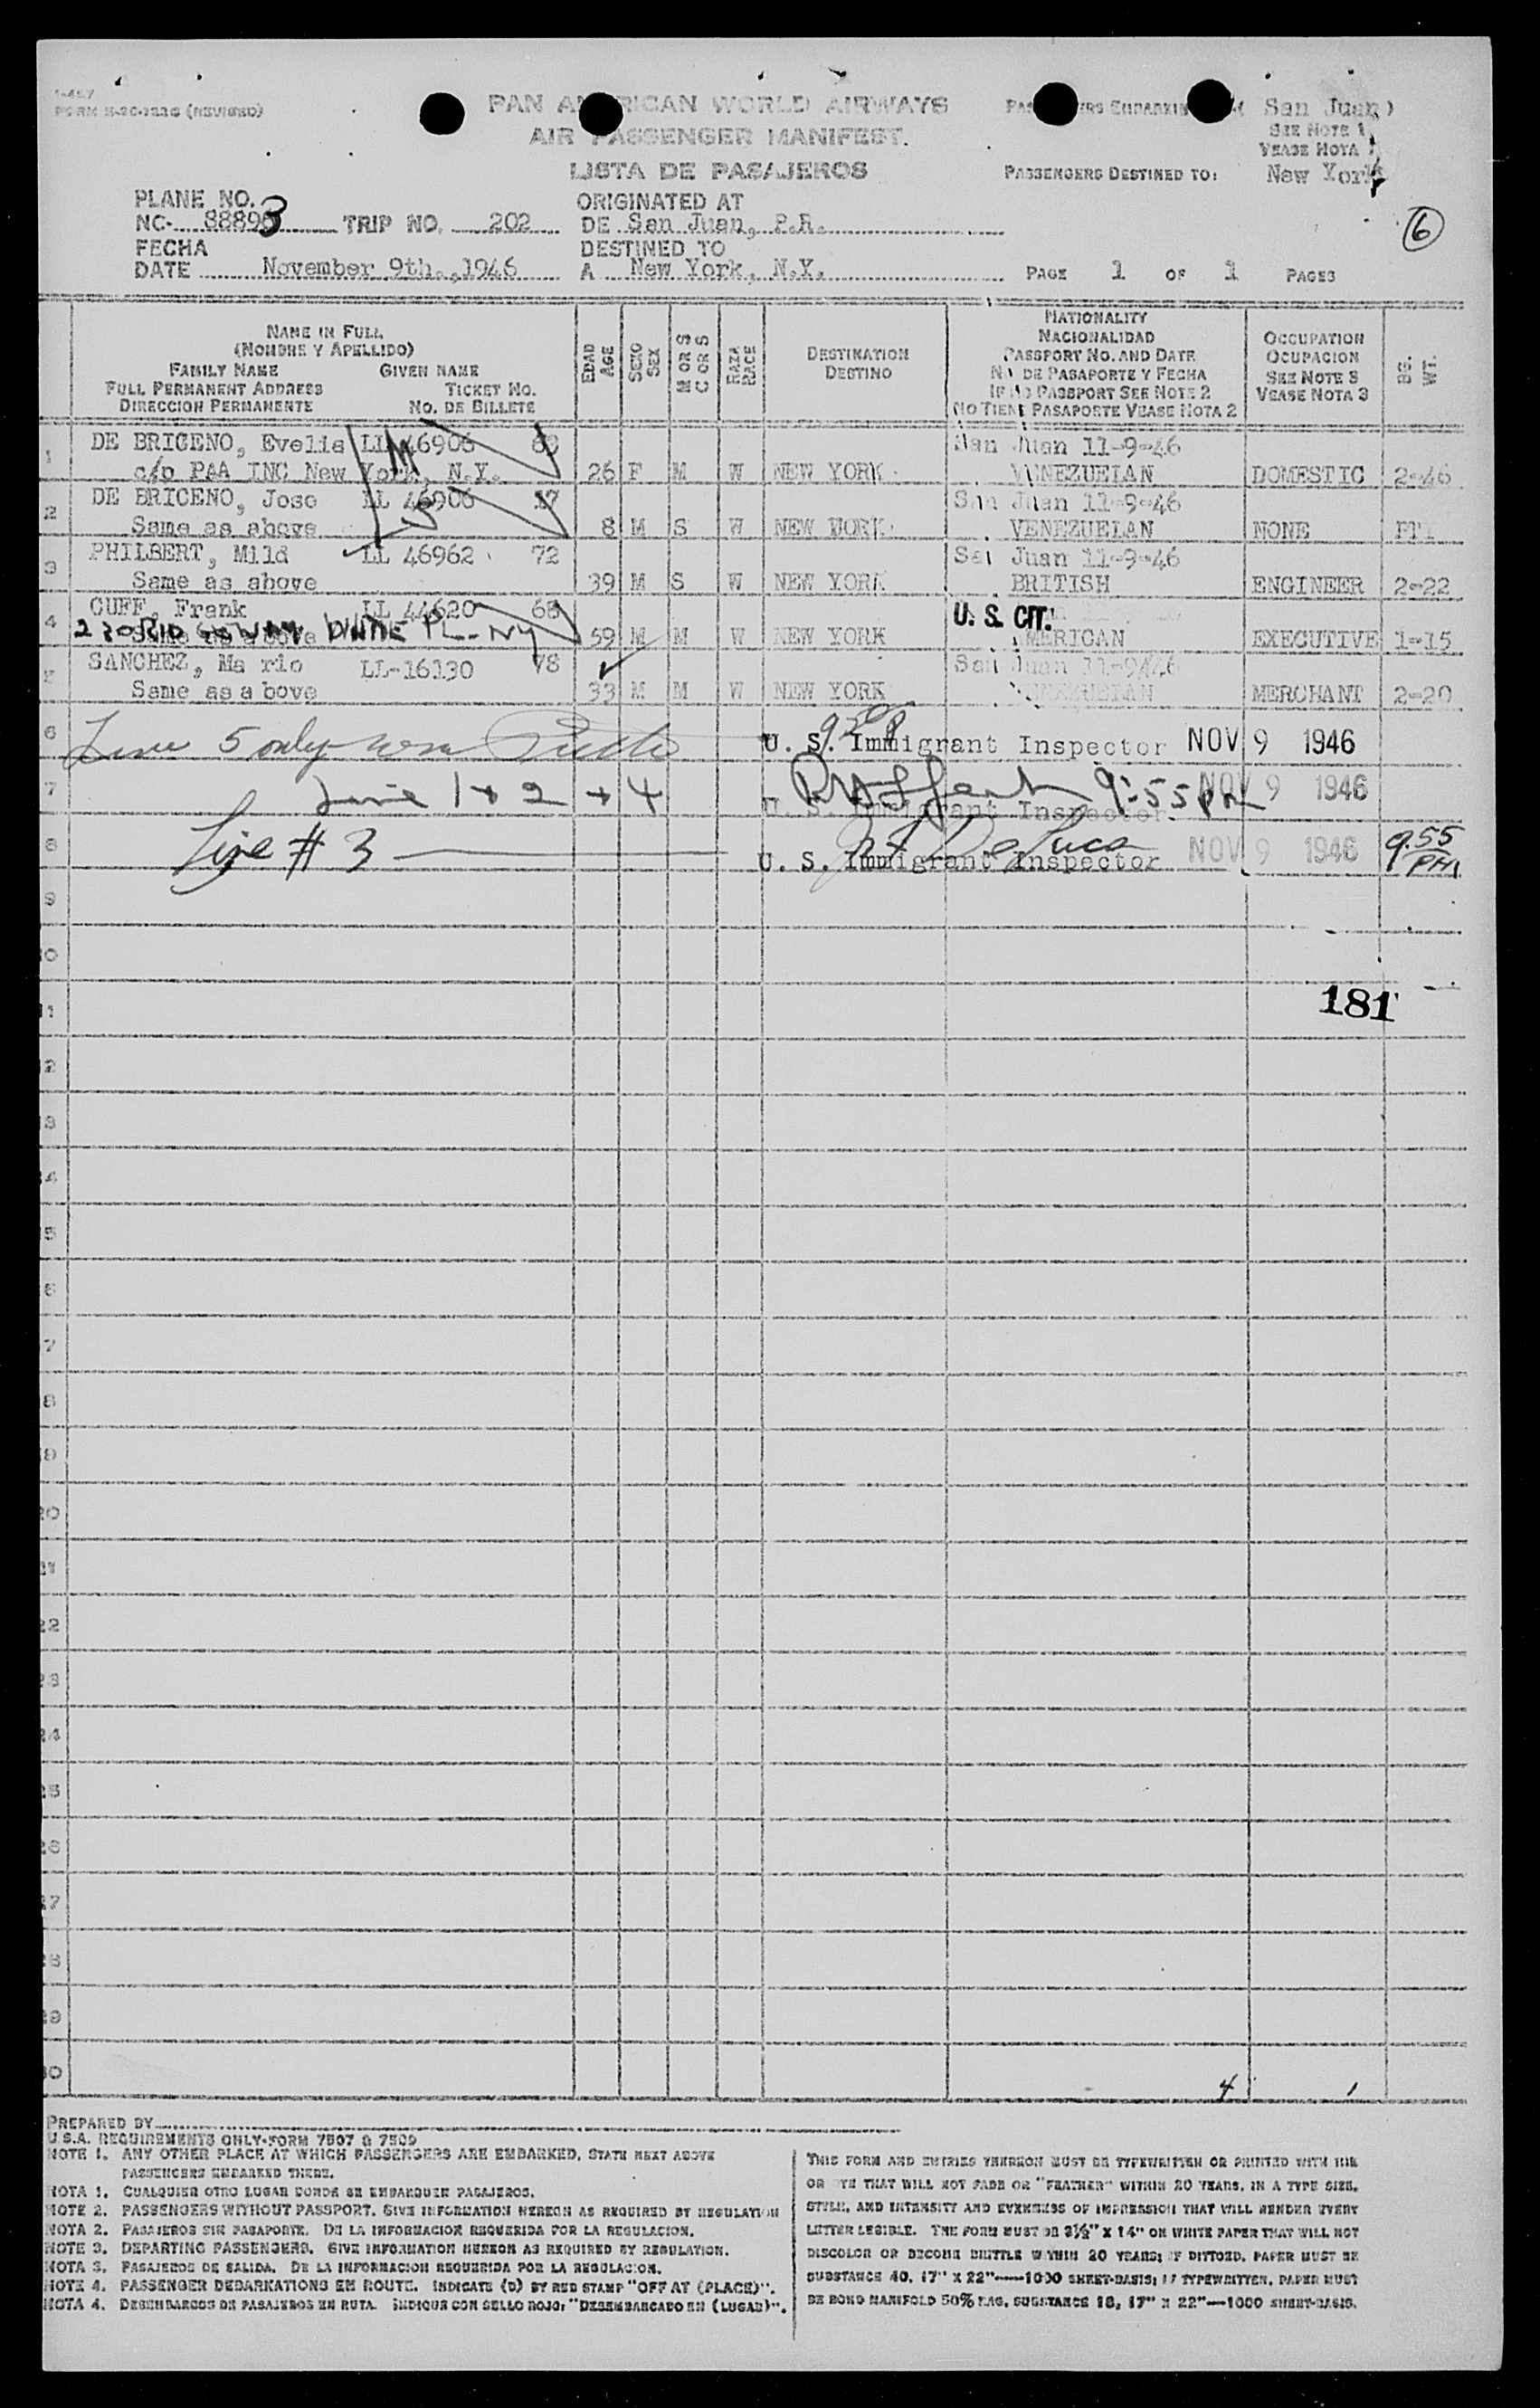 I-457
FORM
(REVISED)
PAN AMERICAN WORLD AIRWAYS
AIR PASSENGER MANIFEST.
LISTA DE PASAJEROS
PASSENGERS EMBARKIN ( San Juan )
SEE NOTE 1
VEASE NOTA 1
PASSENGERS DESTINED TO: New York
PLANE NO.
NC- 88893 TRIP NO. 202
FECHA
DATE November 9th.,1946
ORIGINATED AT
DE San Juan, P.R.
DESTINED TO
A New York, N.Y.
6
PAGE 1 OF 1 PAGES
NAME IN FULL
(NOMBRE Y APELLIDO)
FAMILY NAME GIVEN NAME
FULL PERMANENT ADDRESS TICKET NO.
DIRECCION PERMANENTE NO. DE BILLETE
EDAD AGE
SEXO SEX
M OR S
C OR S
RAZA RACE
DESTINATION
DESTINO
NATIONALITY
NACIONALIDAD
PASSPORT NO. AND DATE
NO DE PASAPORTE Y FECHA
IF NO PASSPORT SEE NOTE 2
NO TIENE PASAPORTE VEASE NOTA 2
OCCUPATION
OCUPACION
SEE NOTE 3
VEASE NOTA 3
BG. WT.
1 DE BRICENO, Evelia LL 46906 San Juan 11-9-46
c/o PAA INC New York, N.Y. 26 F M W NEW YORK VENEZUELAN DOMESTIC 2-46
M
2 DE BRICENO, Jose LL 46906 17 San Juan 11-9-46
Same as above 8 M S W NEW YORK VENEZUELAN NONE
S
3 PHILBERT, Mild LL 46962 72 San Juan 11-9-46
Same as above 39 M S W NEW YORK BRITISH ENGINEER 2-22
4 CUFF, Frank LL 44620 68 U. S. CIT.
PL- NY 59 M M W NEW YORK AMERICAN EXECUTIVE 1-15
5 SANCHEZ, Ma rio LL-16130 78 San Juan 11-9-46
Same as a bove 33 M M W NEW YORK VENEZUELAN MERCHANT 2-20
6 Line 5 only U. S. Immigrant Inspector NOV 9 1946
7 Line 1 + 2 + 4 9:55 pm NOV 9 1946
U. S. Immigrant Inspector
8 Line # 3 De Luca NOV 9 1946 9.55 PM
U. S. Immigrant Inspector
9
10
181
11
12
13
14
15
16
17
18
19
20
21
22
23
24
25
26
27
28
29
30
4 1
PREPARED BY
U.S.A. REQUIREMENTS ONLY-FORM 7507 & 7509
NOTE 1. ANY OTHER PLACE AT WHICH PASSENGERS ARE EMBARKED, STATE NEXT ABOVE
PASSENGERS EMBARKED THERE.
NOTA 1. CUALQUIER OTRO LUGAR DONDE SE EMBARQUEN PASAJEROS.
NOTE 2. PASSENGERS WITHOUT PASSPORT. GIVE INFORMATION HEREON AS REQUIRED BY REGULATION
NOTA 2. PASAJEROS SIN PASAPORTE. DE LA INFORMACION REQUERIDA POR LA REGULACION.
NOTE 3. DEPARTING PASSENGERS. GIVE INFORMATION HEREON AS REQUIRED BY REGULATION.
NOTA 3. PASAJEROS DE SALIDA. DE LA INFORMACION REQUERIDA POR LA REGULACION.
NOTE 4. PASSENGER DEBARKATIONS EN ROUTE. INDICATE (D) BY RED STAMP "OFF AT (PLACE)".
NOTA 4. DESEMBARCOS DE PASAJEROS EN RUTA. INDIQUE CON SELLO ROJO: "DESEMBARCADO EN (LUGAR)".
THIS FORM AND ENTRIES THEREON MUST BE TYPEWRITTEN OR PRINTED WITH INK
OR DYE THAT WILL NOT FADE OR "FEATHER" WITHIN 20 YEARS, IN A TYPE SIZE,
STYLE, AND INTENSITY AND EVENNESS OF IMPRESSION THAT WILL RENDER EVERY
LETTER LEGIBLE. THE FORM MUST BE 8½" X 14" ON WHITE PAPER THAT WILL NOT
DISCOLOR OR BECOME BRITTLE WITHIN 20 YEARS; IF DITTOED, PAPER MUST BE
SUBSTANCE 40, 17" X 22"—1000 SHEET-BASIS; IF TYPEWRITTEN, PAPER MUST
BE BOND MANIFOLD 50% RAG, SUBSTANCE 16, 17" X 22"—1000 SHEET-BASIS.